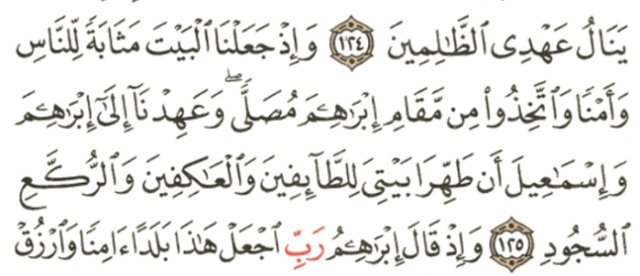 يَنَالُ عَهْدِى ٱلظَّٰلِمِينَ ١٢٤ وَإِذْ جَعَلْنَا ٱلْبَيْتَ مَثَابَةً لِّلنَّاسِ
وَأَمْنًا وَٱتَّخِذُوا۟ مِن مَّقَامِ إِبْرَٰهِـۧمَ مُصَلًّى ۖ وَعَهِدْنَآ إِلَىٰٓ إِبْرَٰهِـۧمَ
وَإِسْمَٰعِيلَ أَن طَهِّرَا بَيْتِىَ لِلطَّآئِفِينَ وَٱلْعَٰكِفِينَ وَٱلرُّكَّعِ
ٱلسُّجُودِ ١٢٥ وَإِذْ قَالَ إِبْرَٰهِـۧمُ رَبِّ ٱجْعَلْ هَٰذَا بَلَدًا ءَامِنًا وَٱرْزُقْ